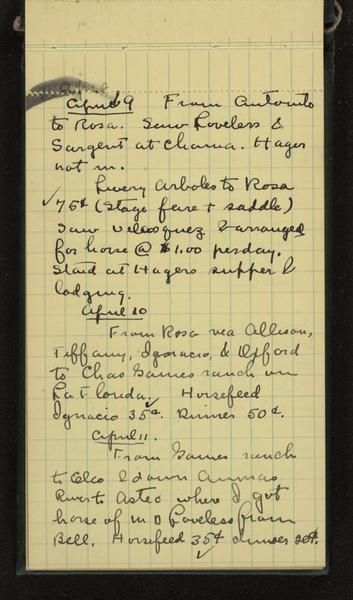 April 9 From Antonito
to Rosa. Saw Loveless &
Sargent at Chama. Hager
not in.
Livery Arboles to Rosa
✓ 75¢ (Stage fare + saddle)
Saw Velasquez & arranged
for horse @ $1.00 per day.
Staid at Hagers supper &
lodging.
April 10
From Rosa via Allison,
Tiffany, Ignacio, & Oxford
to Chas James ranch on
La Florida. Horsefeed
Ignacio 35¢. Dinner 50¢.
April 11.
From James ranch
to & down Animas
River to Aztec where I got
horse of M D Loveless from
Bell. Horsefeed 35¢ dinner 50¢.
✓